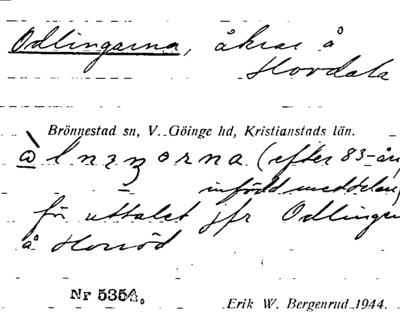 Odlingarna, åkrar å
Hovdala
Brönnestad sn, V. Göinge hd, Kristianstads län.
(efter 83-åri
infödd meddelar,
för uttalet jfr Odlingen
å Horröd
Nr 5354.
Erik W. Bergenrud 1944.